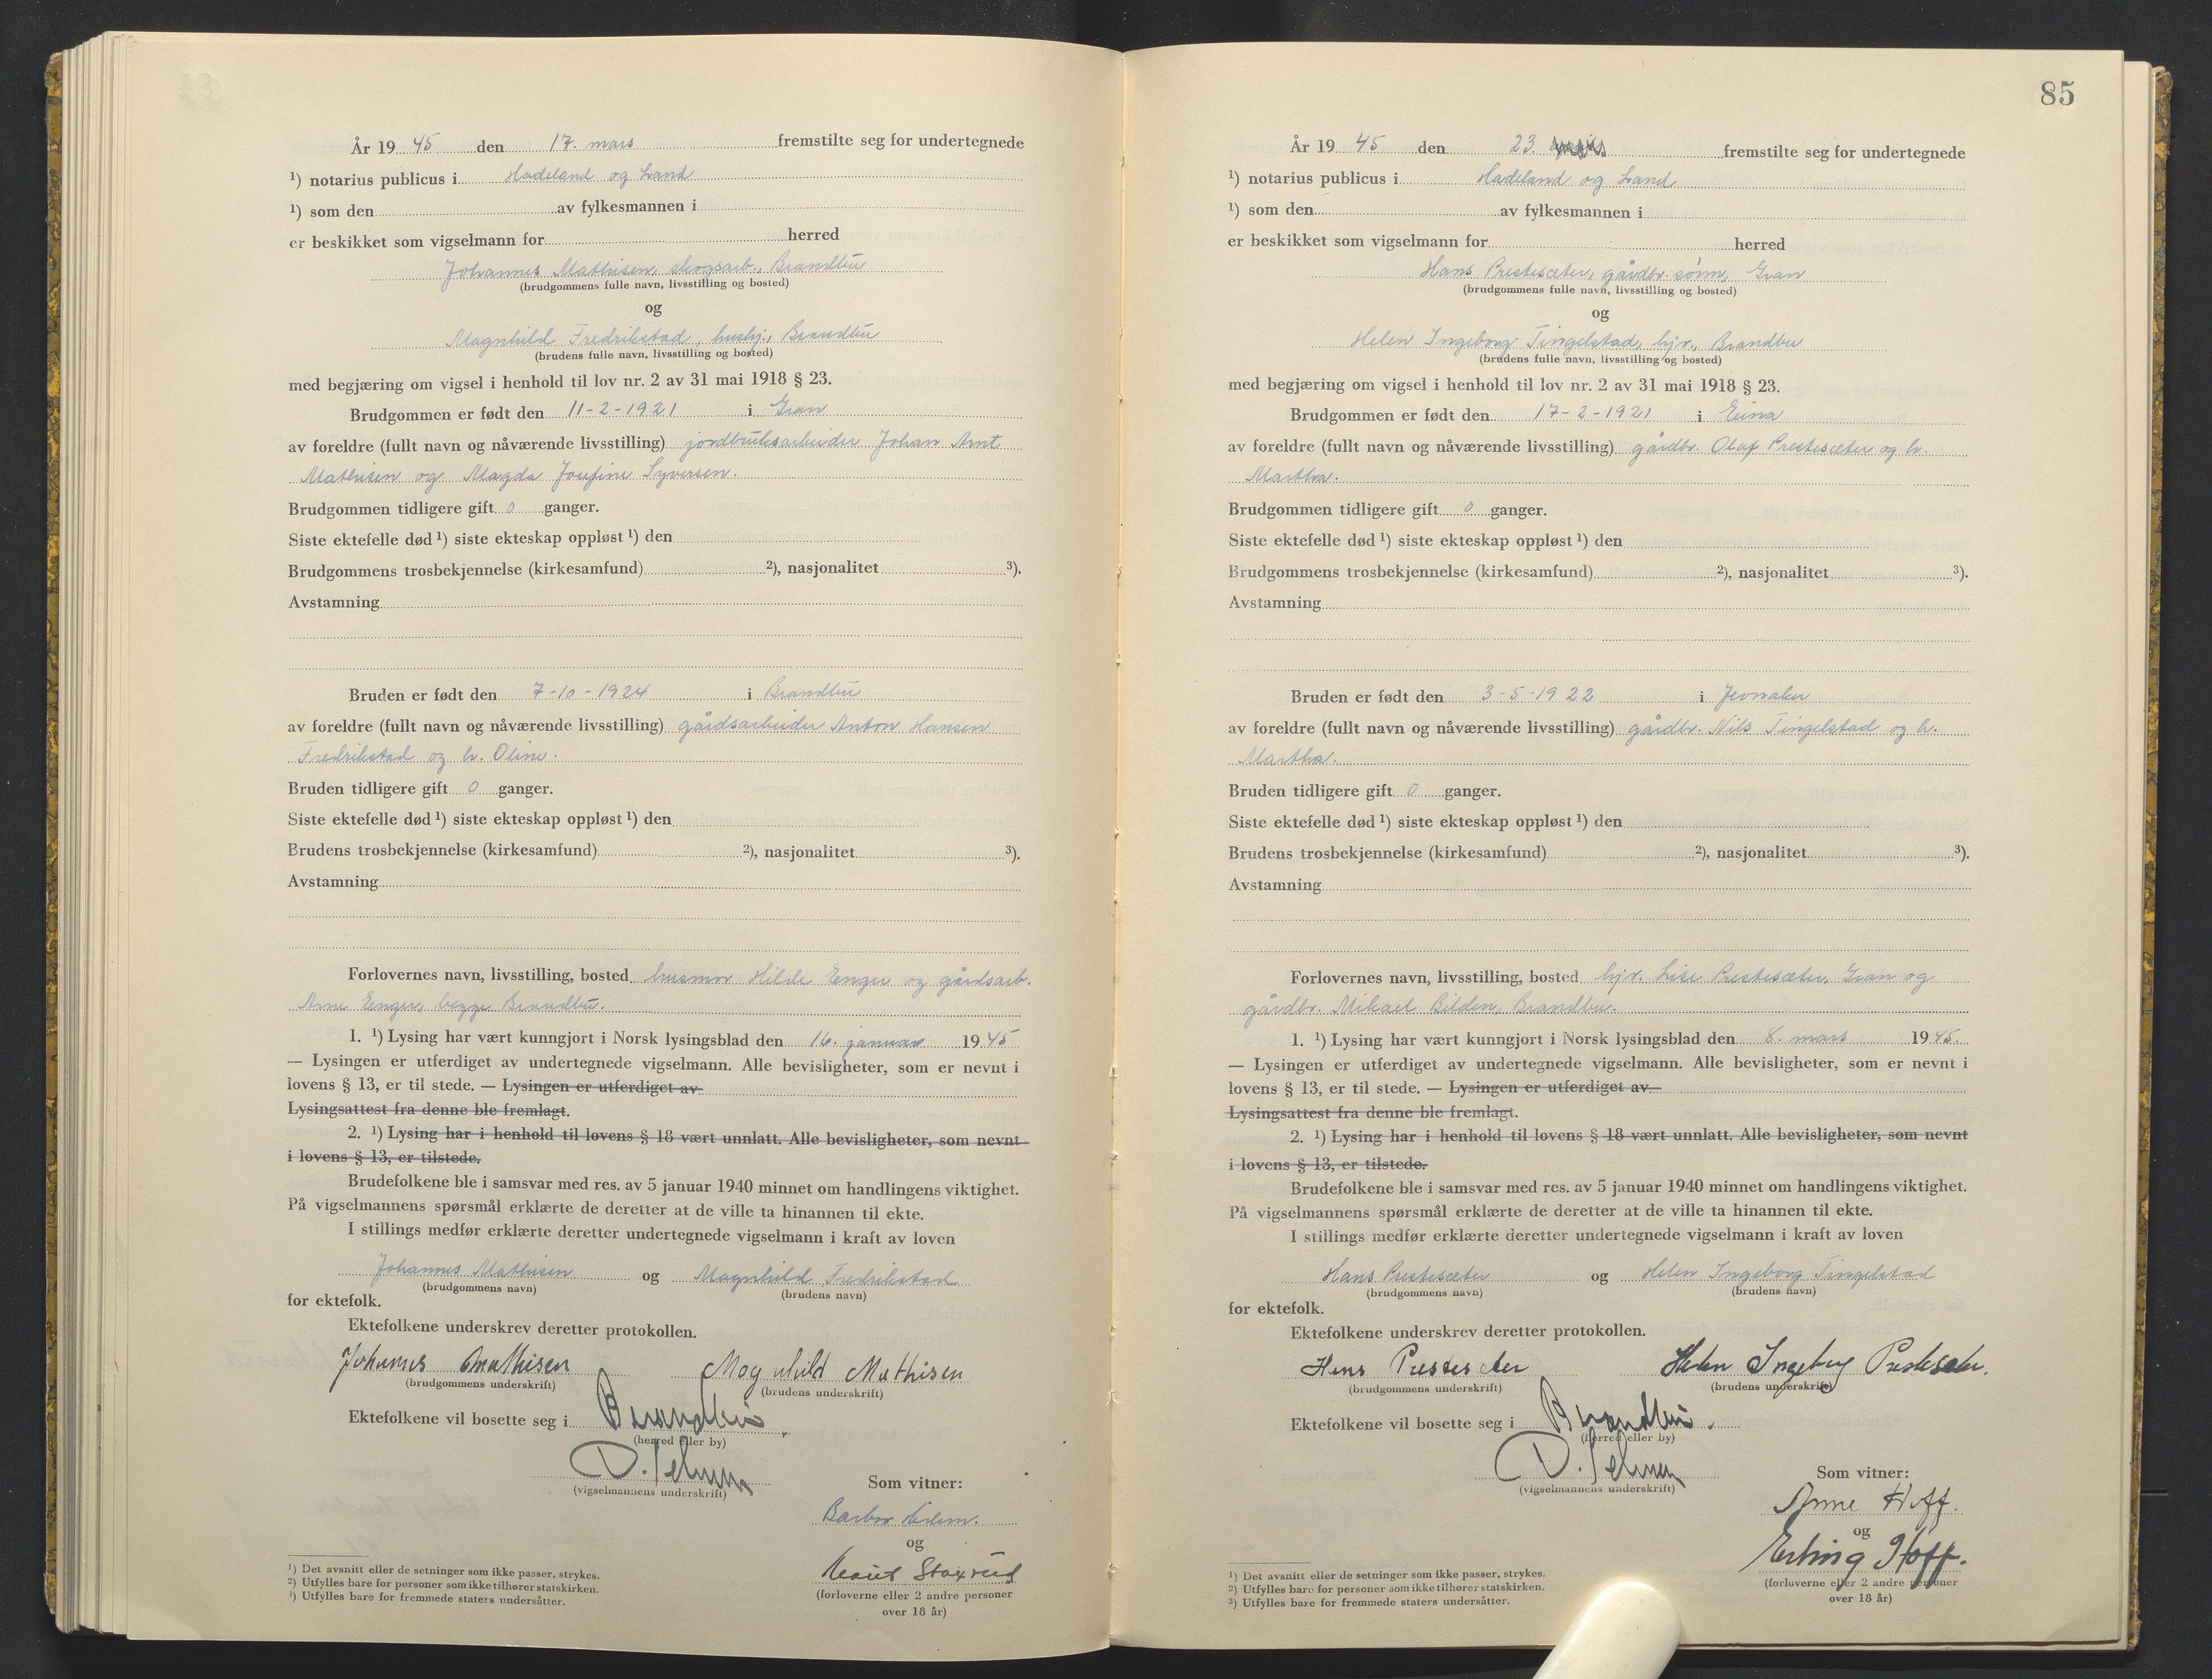 År 19 45 den 17. mars fremstilte seg for undertegnede
¹) notarius publicus i Hadeland og Land
¹) som den av fylkesmannen i
er beskikket som vigselmann for herred
Johannes Mathisen, skogsarb., Brandbu
(brudgommens fulle navn, livsstilling og bosted)
og
Magnhild Fredrikstad, hushj., Brandbu
(brudens fulle navn, livsstilling og bosted)
med begjæring om vigsel i henhold til lov nr. 2 av 31 mai 1918 § 23.
Brudgommen er født den 11-2-1921 i Gran
av foreldre (fullt navn og nåværende livsstilling) jordbruksarbeider Johan Arnt
Mathisen og Magda Josefine Syversen.
Brudgommen tidligere gift 0 ganger.
Siste ektefelle død ¹) siste ekteskap oppløst ¹) den
Brudgommens trosbekjennelse (kirkesamfund) ²), nasjonalitet ³).
Avstamning
Bruden er født den 7-10-1924 i Brandbu
av foreldre (fullt navn og nåværende livsstilling) gårdsarbeider Anton Hansen
Fredrikstad og h. Oline.
Bruden tidligere gift 0 ganger.
Siste ektefelle død ¹) siste ekteskap oppløst ¹) den
Brudens trosbekjennelse (kirkesamfund) ²), nasjonalitet ³).
Avstamning
Forlovernes navn, livsstilling, bosted husmor Hilde Enger og gårdsarb.
Arne Enger, begge Brandbu.
1. ¹) Lysing har vært kunngjort i Norsk lysingsblad den 16. januar 19 45
— Lysingen er utferdiget av undertegnede vigselmann. Alle bevisligheter, som er nevnt i
lovens § 13, er til stede. — Lysingen er utferdiget av
Lysingsattest fra denne ble fremlagt.
2. ¹) Lysing har i henhold til lovens § 18 vært unnlatt. Alle bevisligheter, som nevnt
i lovens § 13, er tilstede.
Brudefolkene ble i samsvar med res. av 5 januar 1940 minnet om handlingens viktighet.
På vigselmannens spørsmål erklærte de deretter at de ville ta hinannen til ekte.
I stillings medfør erklærte deretter undertegnede vigselmann i kraft av loven
Johannes Mathisen og Magnhild Fredrikstad
(brudgommens navn) (brudens navn)
for ektefolk.
Ektefolkene underskrev deretter protokollen.
Johannes Mathisen Magnhild Mathisen
(brudgommens underskrift) (brudens underskrift)
Ektefolkene vil bosette seg i Brandbu.
(herred eller by)
(vigselmannens underskrift)
Som vitner:
og
(forloverne eller 2 andre personer
over 18 år)
¹) Det avsnitt eller de setninger som ikke passer, strykes.
²) Utfylles bare for personer som ikke tilhører statskirken.
³) Utfylles bare for fremmede staters undersåtter.
85
År 19 45 den 23 fremstilte seg for undertegnede
¹) notarius publicus i Hadeland og Land
¹) som den av fylkesmannen i
er beskikket som vigselmann for herred
Hans Prestesæter, gårdbr. sønn, Gran
(brudgommens fulle navn, livsstilling og bosted)
og
Helen Ingeborg Tingelstad, hjv., Brandbu
(brudens fulle navn, livsstilling og bosted)
med begjæring om vigsel i henhold til lov nr. 2 av 31 mai 1918 § 23.
Brudgommen er født den 17-2-1921 i Eina
av foreldre (fullt navn og nåværende livsstilling) gårdbr. Olaf Prestesæter og h.
Martha.
Brudgommen tidligere gift 0 ganger.
Siste ektefelle død ¹) siste ekteskap oppløst ¹) den
Brudgommens trosbekjennelse (kirkesamfund) ²), nasjonalitet ³).
Avstamning
Bruden er født den 3-5-1922 i Jevnaker
av foreldre (fullt navn og nåværende livsstilling) gårdbr. Nils Tingelstad og h.
Martha.
Bruden tidligere gift 0 ganger.
Siste ektefelle død ¹) siste ekteskap oppløst ¹) den
Brudens trosbekjennelse (kirkesamfund) ²), nasjonalitet ³).
Avstamning
Forlovernes navn, livsstilling, bosted hjv. Lise Prestesæter, Gran og
gårdbr. Mikael Bilden, Brandbu.
1. ¹) Lysing har vært kunngjort i Norsk lysingsblad den 8. mars 19 45.
— Lysingen er utferdiget av undertegnede vigselmann. Alle bevisligheter, som er nevnt i
lovens § 13, er til stede. — Lysingen er utferdiget av
Lysingsattest fra denne ble fremlagt.
2. ¹) Lysing har i henhold til lovens § 18 vært unnlatt. Alle bevisligheter, som nevnt
i lovens § 13, er tilstede.
Brudefolkene ble i samsvar med res. av 5 januar 1940 minnet om handlingens viktighet.
På vigselmannens spørsmål erklærte de deretter at de ville ta hinannen til ekte.
I stillings medfør erklærte deretter undertegnede vigselmann i kraft av loven
Hans Prestesæter og Helen Ingeborg Tingelstad
(brudgommens navn) (brudens navn)
for ektefolk.
Ektefolkene underskrev deretter protokollen.
Hans Prestesæter Helen Ingeborg Prestesæter.
(brudgommens underskrift) (brudens underskrift)
Ektefolkene vil bosette seg i Brandbu.
(herred eller by)
(vigselmannens underskrift)
Som vitner:
Anne Hoff.
og
Erling Hoff.
(forloverne eller 2 andre personer
over 18 år)
¹) Det avsnitt eller de setninger som ikke passer, strykes.
²) Utfylles bare for personer som ikke tilhører statskirken.
³) Utfylles bare for fremmede staters undersåtter.